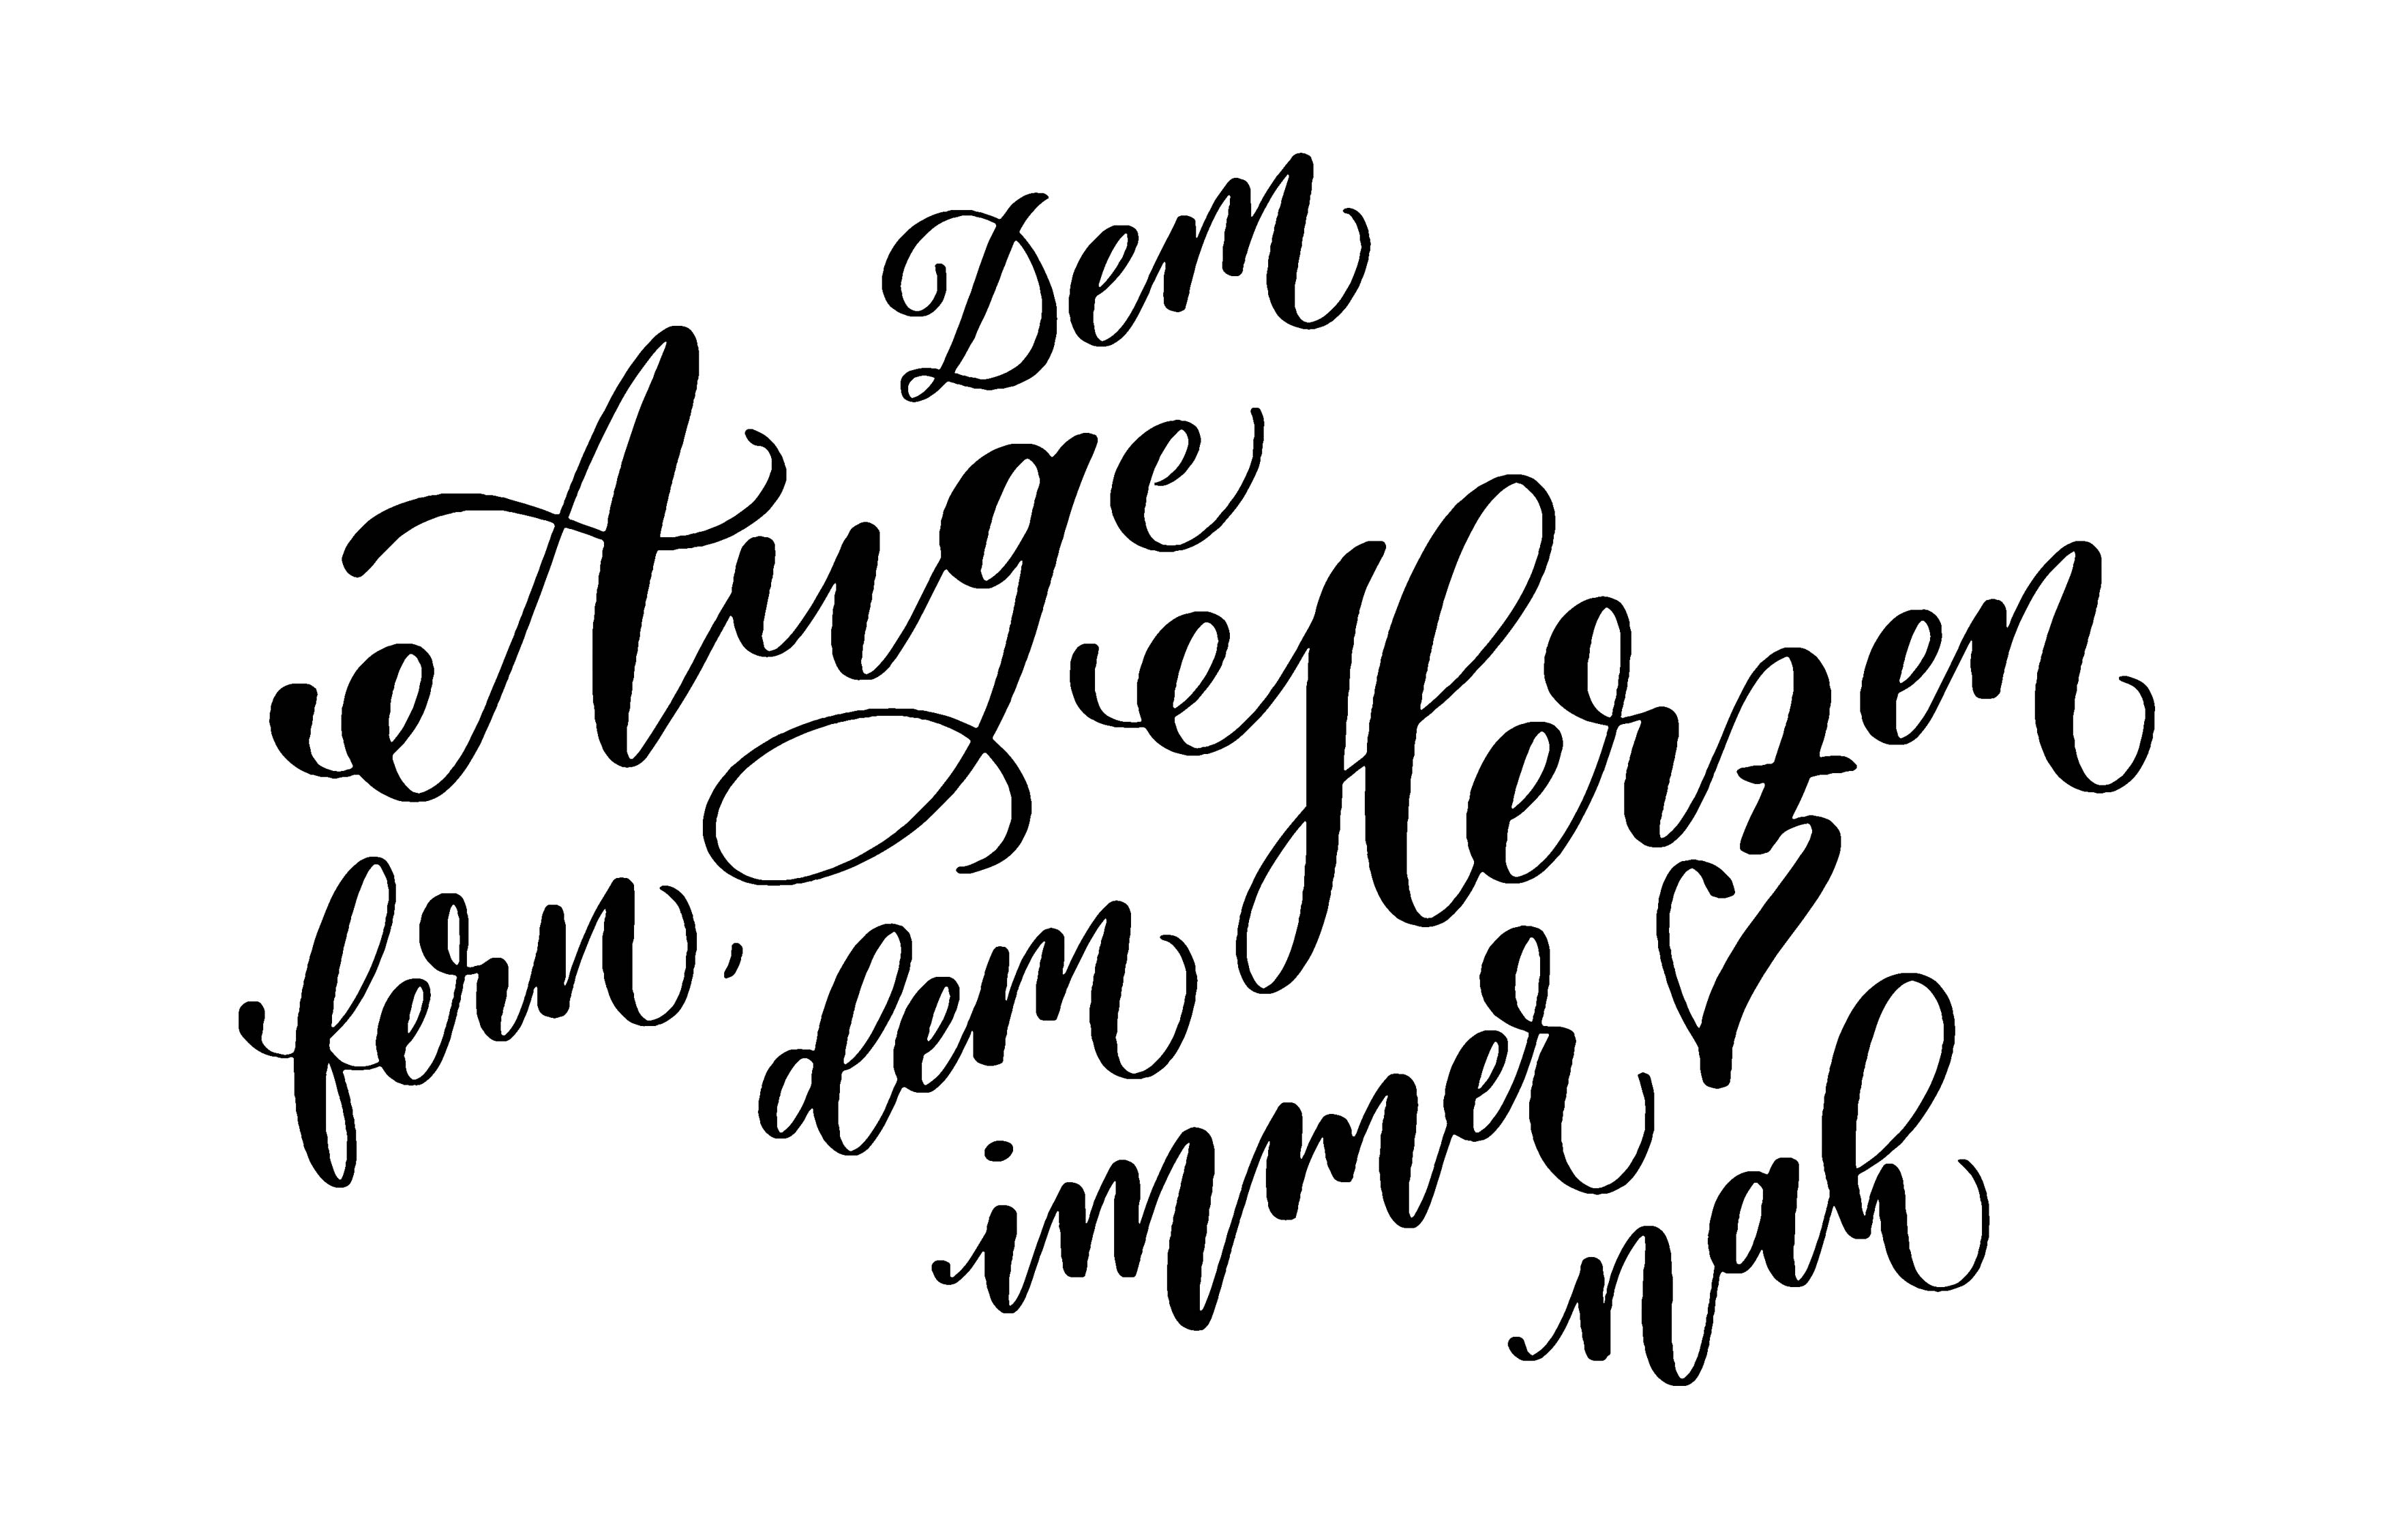 Dem
Auge
fern,
dem
Herzen
immer
nah